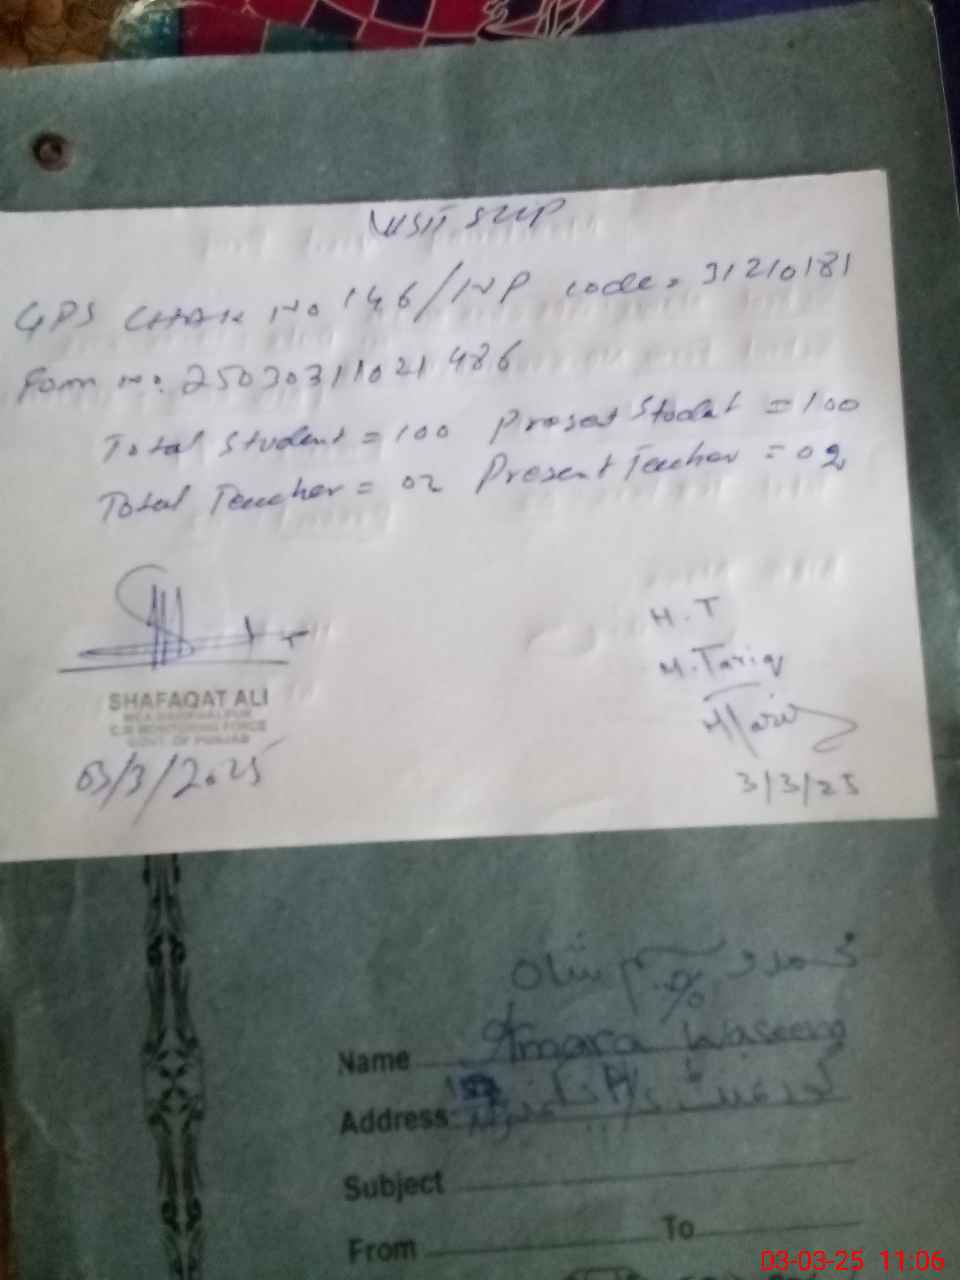 VISIT SLIP
GPS CHAK No 146/NP code = 31210181
Form no: 25030311021486
Total Student = 100 Presest Stodet = 100
Total Teacher = 02 Present Teacher = 02
H.T
M. Tariq
SHAFAQAT ALI
GOVT OF PUNJAB
03/3/2025
3/3/25
Name Amara Waseem
Address
Subject
From To
03-03-25 11:06